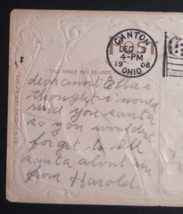 CANTON
DEC 3
4-PM
1908
OHIO
THIS SPACE MAY BE USED
dear aunt Ella
thought i would
send you santa
so you wouldnt
forget to tell
santa about me
from Harold.